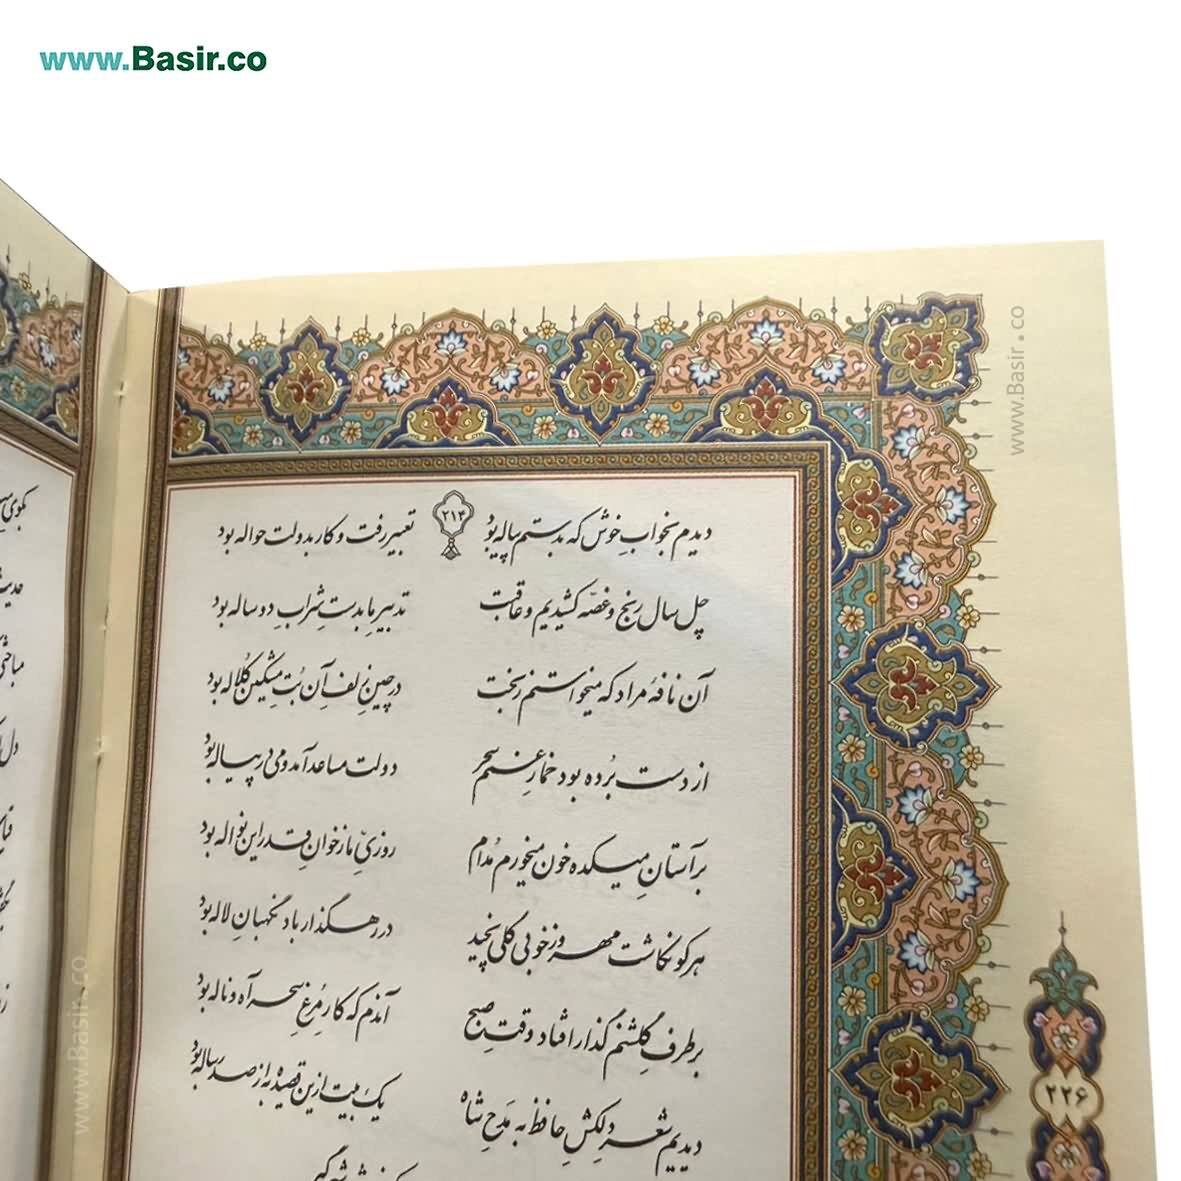 www.Basir.co
www.Basir.co
۲۱۴
دیدم بخواب خوش که بدستم پیاله بود تعبیر رفت و کار بدولت حواله بود
چل سال رنج و غصّه کشیدیم و عاقبت تدبیرِ ما بدستِ شرابِ دوساله بود
آن نافهٔ مراد که میخواستم ز بخت در چینِ زلفِ آن بُتِ مشکین کُلاله بود
از دست بُرده بود خمارِ غمم سحر دولت مساعد آمد و می در پیاله بود
بر آستانِ میکده خون میخورم مُدام روزیِّ ما ز خوانِ قدر این نواله بود
هر کو نکاشت مهر و ز خوبی گلی نچید در رهگذارِ باد نگهبانِ لاله بود
بر طرفِ گلشنم گذار افتاد وقتِ صبح آندم که کارِ مرغِ سحر آه و ناله بود
دیدیم شعرِ دلکشِ حافظ به مدحِ شاه یک بیت ازین قصیده به از صد رساله بود
۲۲۶
www.Basir.co
حدیث
دل